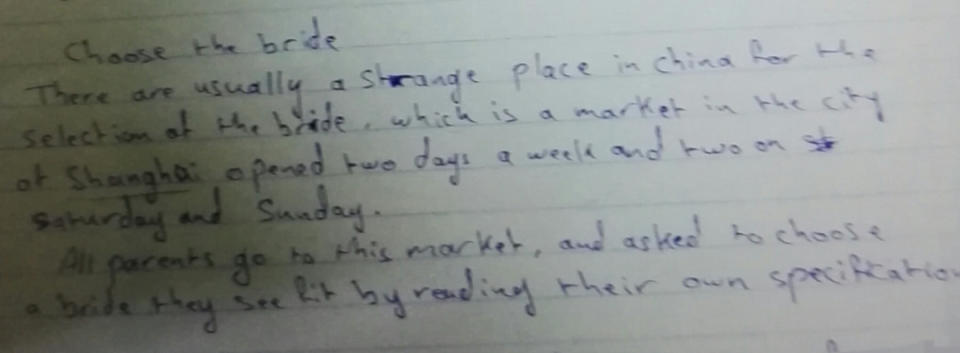 Choose the bride
There are usually a strange place in china for the
selection of the bride, which is a market in the city
of Shanghai opened two days a week and two on
saturday and Sunday.
All parents go to this market, and asked to choose
a bride they see fit by reading their own specification